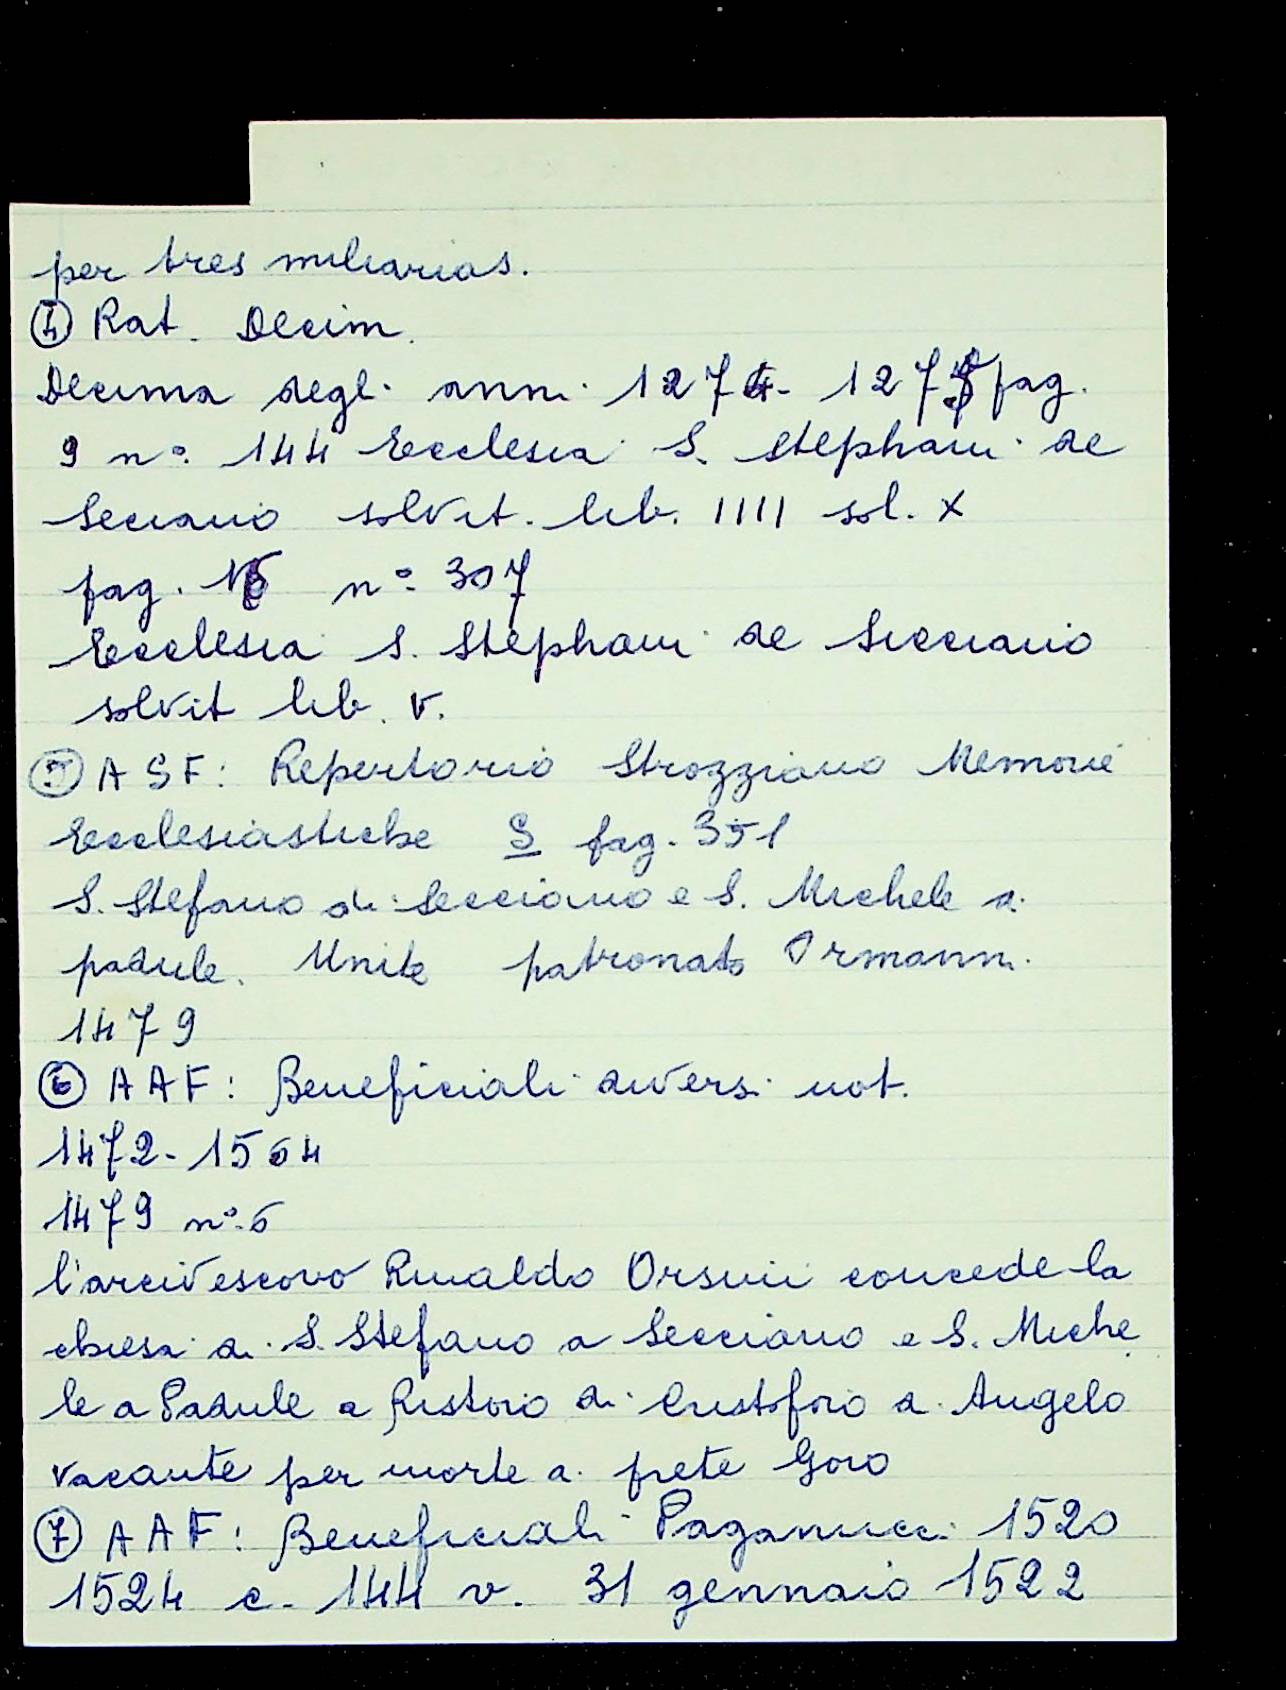 per tres miliarias.
④ Rat. Decim.
Decima degli anni 1274 - 1275 pag.
9 n°. 144 Ecclesia S. Stephani de
Seciano solvit. lib. IIII sol. X
pag. 16 n° 307
Ecclesia S. Stephani de Sicciano
solvit lib. V.
⑤ ASF: Repertorio Strozziano Memorie
Ecclesiastiche S pag. 351
S. Stefano di Secciano e S. Michele a
padule. Unite patronato Ormanni
1479
⑥ AAF: Beneficiali diversi not.
1472 - 1504
1479 n°. 6
l'arcivescovo Rinaldo Orsini concede la
chiesa di S. Stefano a Secciano e S. Miche
le a Padule a Ristoro di Cristoforo d. Angelo
vacante per morte di prete Goro
⑦ AAF: Beneficiali Paganucci 1520
1524 c. 144 v. 31 gennaio 1522